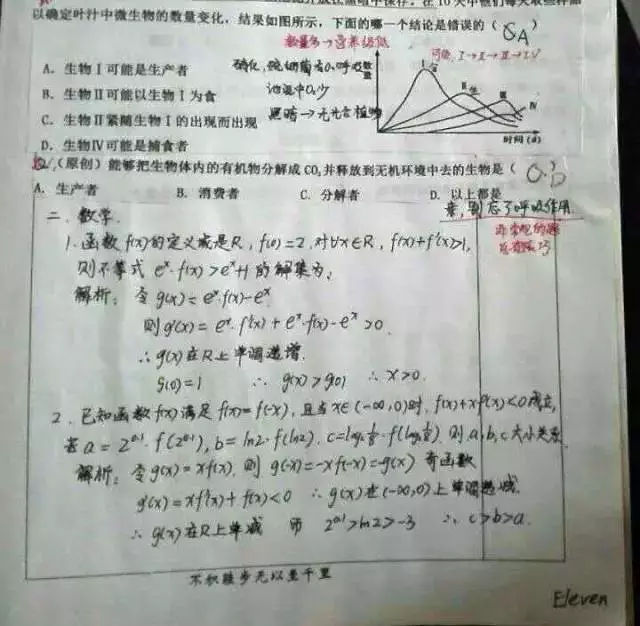 以确定叶汁中微生物的数量变化，结果如图所示，下面的哪一个结论是错误的（ A ）
数量多→营养级低
可能 I→II→III→IV
A. 生物Ⅰ可能是生产者
B. 生物Ⅱ可能以生物Ⅰ为食
C. 生物Ⅱ紧随生物Ⅰ的出现而出现
D. 生物Ⅳ可能是捕食者
黑暗→无光合植物
数量
I
II
III
IV
时间(d)
（原创）能够把生物体内的有机物分解成CO₂并释放到无机环境中去的生物是（ D ）
A. 生产者 B. 消费者 C. 分解者 D. 以上都是
别忘了呼吸作用
二、数学.
1. 函数f(x)的定义域是R, f(0)=2, 对∀x∈R, f(x)+f'(x)>1,
则不等式 eˣ·f(x)>eˣ+1 的解集为:
解析: 令g(x)=eˣ·f(x)-eˣ
则g'(x)=eˣ·f'(x)+eˣ·f(x)-eˣ>0.
∴g(x)在R上单调递增.
g(0)=1 ∴ g(x)>g(0) ∴ x>0.
2. 已知函数f(x)满足f(x)=f(-x), 且当x∈(-∞,0)时, f(x)+xf'(x)<0成立,
若a=2^0.1·f(2^0.1), b=ln2·f(ln2), c=log₂⅛·f(log₂⅛), 则a,b,c大小关系
解析: 令g(x)=xf(x), 则 g(-x)=-xf(-x)=-g(x) 奇函数
g'(x)=xf'(x)+f(x)<0 ∴g(x)在(-∞,0)上单调递减.
∴ g(x)在R上单减 而 2^0.1>ln2>-3 ∴ c>b>a.
不积跬步无以至千里
Eleven